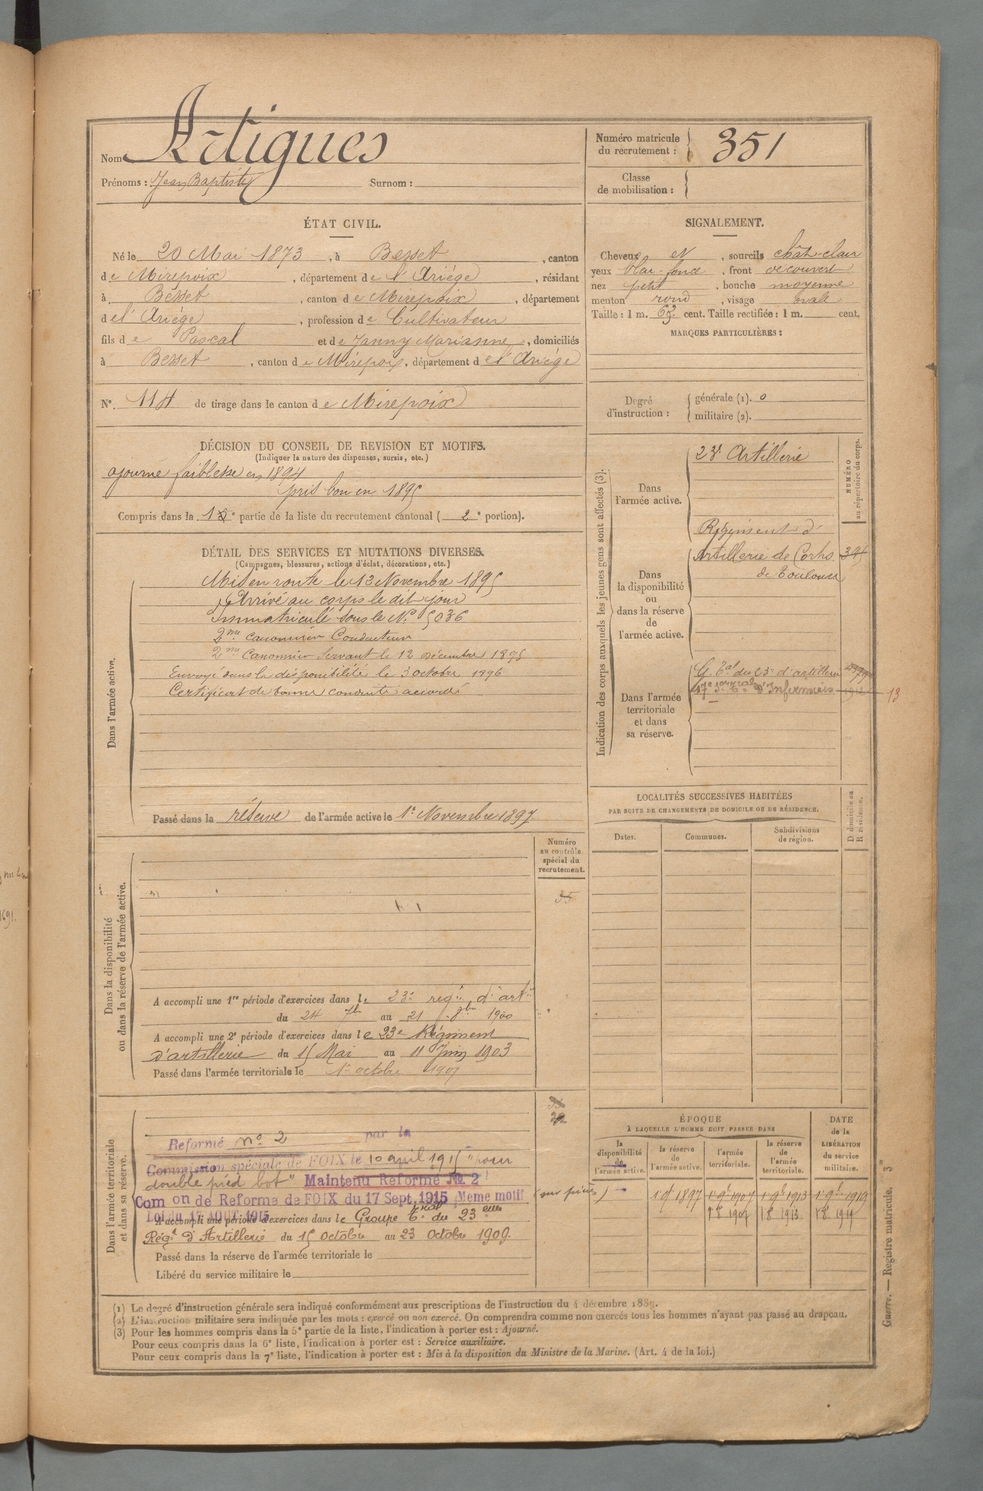 Nom Artigues
Prénoms : Jean Baptiste Surnom :
Numéro matricule du recrutement : 351
Classe de mobilisation :
ÉTAT CIVIL.
Né le 20 Mai 1873, à Besset, canton
de Mirepoix, département de l'Ariège, résidant
à Besset, canton de Mirepoix, département
de l'Ariège, profession de Cultivateur
fils de Pascal et de Janny Marianne, domiciliés
à Besset, canton de Mirepoix, département de l'Ariège
N°. 114 de tirage dans le canton de Mirepoix
SIGNALEMENT.
Cheveux et, sourcils chât-clair
yeux, front découvert
nez petit, bouche moyenne
menton rond, visage ovale
Taille : 1 m. 63 cent. Taille rectifiée : 1 m. cent.
MARQUES PARTICULIÈRES :
Degré d'instruction : générale (1). 0
militaire (2).
DÉCISION DU CONSEIL DE REVISION ET MOTIFS.
(Indiquer la nature des dispenses, sursis, etc.)
ajourné faiblesse en 1894
pris bon en 1895
Compris dans la 1e partie de la liste du recrutement cantonal ( 2e portion).
DÉTAIL DES SERVICES ET MUTATIONS DIVERSES.
(Campagnes, blessures, actions d'éclat, décorations, etc.)
Dans l'armée active.
Mis en route le 12 Novembre 1895
Arrivé au corps le dit jour
Immatriculé sous le N° 5036
2me Canonnier Conducteur
2me Canonnier Servant le 12 Décembre 1895
Envoyé dans la disponibilité le 3 octobre 1896
Certificat de bonne conduite accordé
Passé dans la réserve de l'armée active le 1er Novembre 1897
Indication des corps auxquels les jeunes gens sont affectés (3).
NUMÉRO au répertoire du corps.
Dans l'armée active.
23e Artillerie
Dans la disponibilité ou dans la réserve de l'armée active.
Régiment d'
Artillerie de Corps
de Toulouse
Dans l'armée territoriale et dans sa réserve.
G. Tal du 23e d'artillerie
d'Infirmiers
13
LOCALITÉS SUCCESSIVES HABITÉES
PAR SUITE DE CHANGEMENTS DE DOMICILE OU DE RÉSIDENCE.
Dates. Communes. Subdivisions de région. D domicile ou R résidence.
Dans la disponibilité ou dans la réserve de l'armée active.
Numéro au contrôle spécial du recrutement.
35
A accompli une 1re période d'exercices dans le 23e régt d'artie
du 24 au 21 1900
A accompli une 2e période d'exercices dans le 23e Régiment
d'artillerie du 15 Mai au 11 Juin 1903
Passé dans l'armée territoriale le 1er octobre 1907
Dans l'armée territoriale et dans sa réserve.
Reformé n° 2 par la
Commission spéciale de FOIX le 10 avril 1915 "pour
double pied bot" Maintenu Reformé № 2
Com on de Reforme de FOIX du 17 Sept. 1915 Même motif
Loi du 17 AOUT 1915
A accompli une période d'exercices dans le Groupe Trial du 23eme
Régt d'Artillerie du 15 octobre au 23 Octobre 1909.
Passé dans la réserve de l'armée territoriale le
Libéré du service militaire le
ÉPOQUE
À LAQUELLE L'HOMME DOIT PASSER DANS
la disponibilité de l'armée active. la réserve de l'armée active. l'armée territoriale. la réserve de l'armée territoriale.
DATE de la LIBÉRATION du service militaire.
(1) Le degré d'instruction générale sera indiqué conformément aux prescriptions de l'instruction du 4 décembre 1889.
(2) L'instruction militaire sera indiquée par les mots : exercé ou non exercé. On comprendra comme non exercés tous les hommes n'ayant pas passé au drapeau.
(3) Pour les hommes compris dans la 5e partie de la liste, l'indication à porter est : Ajourné.
Pour ceux compris dans la 6e liste, l'indication à porter est : Service auxiliaire.
Pour ceux compris dans la 7e liste, l'indication à porter est : Mis à la disposition du Ministre de la Marine. (Art. 4 de la loi.)
Guerre. — Registre matricule.